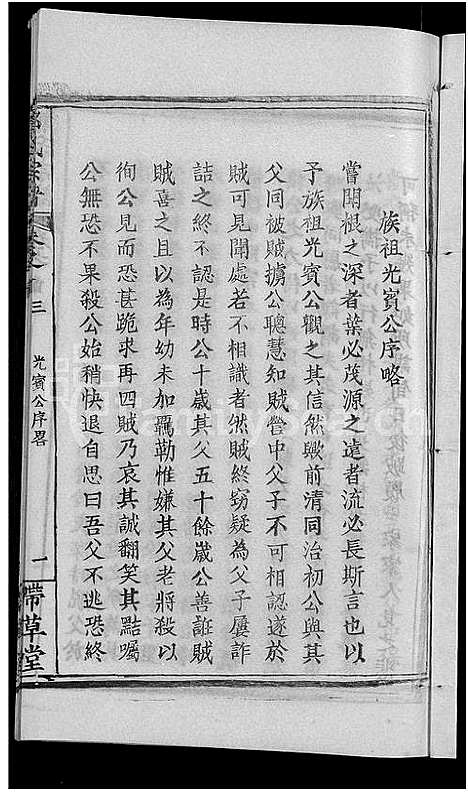 族祖光賓公序略
嘗聞根之深者葉必茂源之遠者流必長斯言也以
予族祖光賓公觀之其信然歟前清同治初公與其
父同被賊擄公聰慧知賊營中父子不可相認遂於
賊可見聞處若不相識者然賊終竊疑為父子屢詐
詰之終不認是時公十歲其父五十餘歲公善誑賊
賊喜之且以為年幼未加羈勒惟嫌其父老將殺以
徇公見而恐甚跪求再四賊乃哀其誠翻笑其點囑
公無恐不果殺公始稍快退自思曰吾父不逃恐終
三
光賓公序畧
一
帶草堂